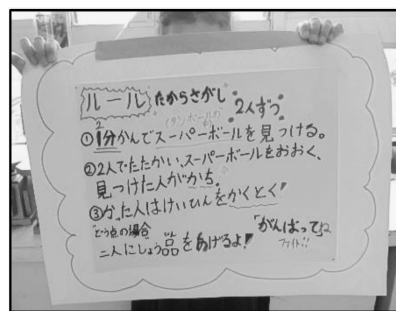 ルール たからさがし 2人ずつ
(ダンボールの中)
①1分かんでスーパーボールを見つける。
②2人でたたかい、スーパーボールをおおく、
見つけた人がかち。
③かった人はけいひんをかくとく!
"どう点の場合"
二人にしょう品をあげるよ! "がんばってね
ファイト!!